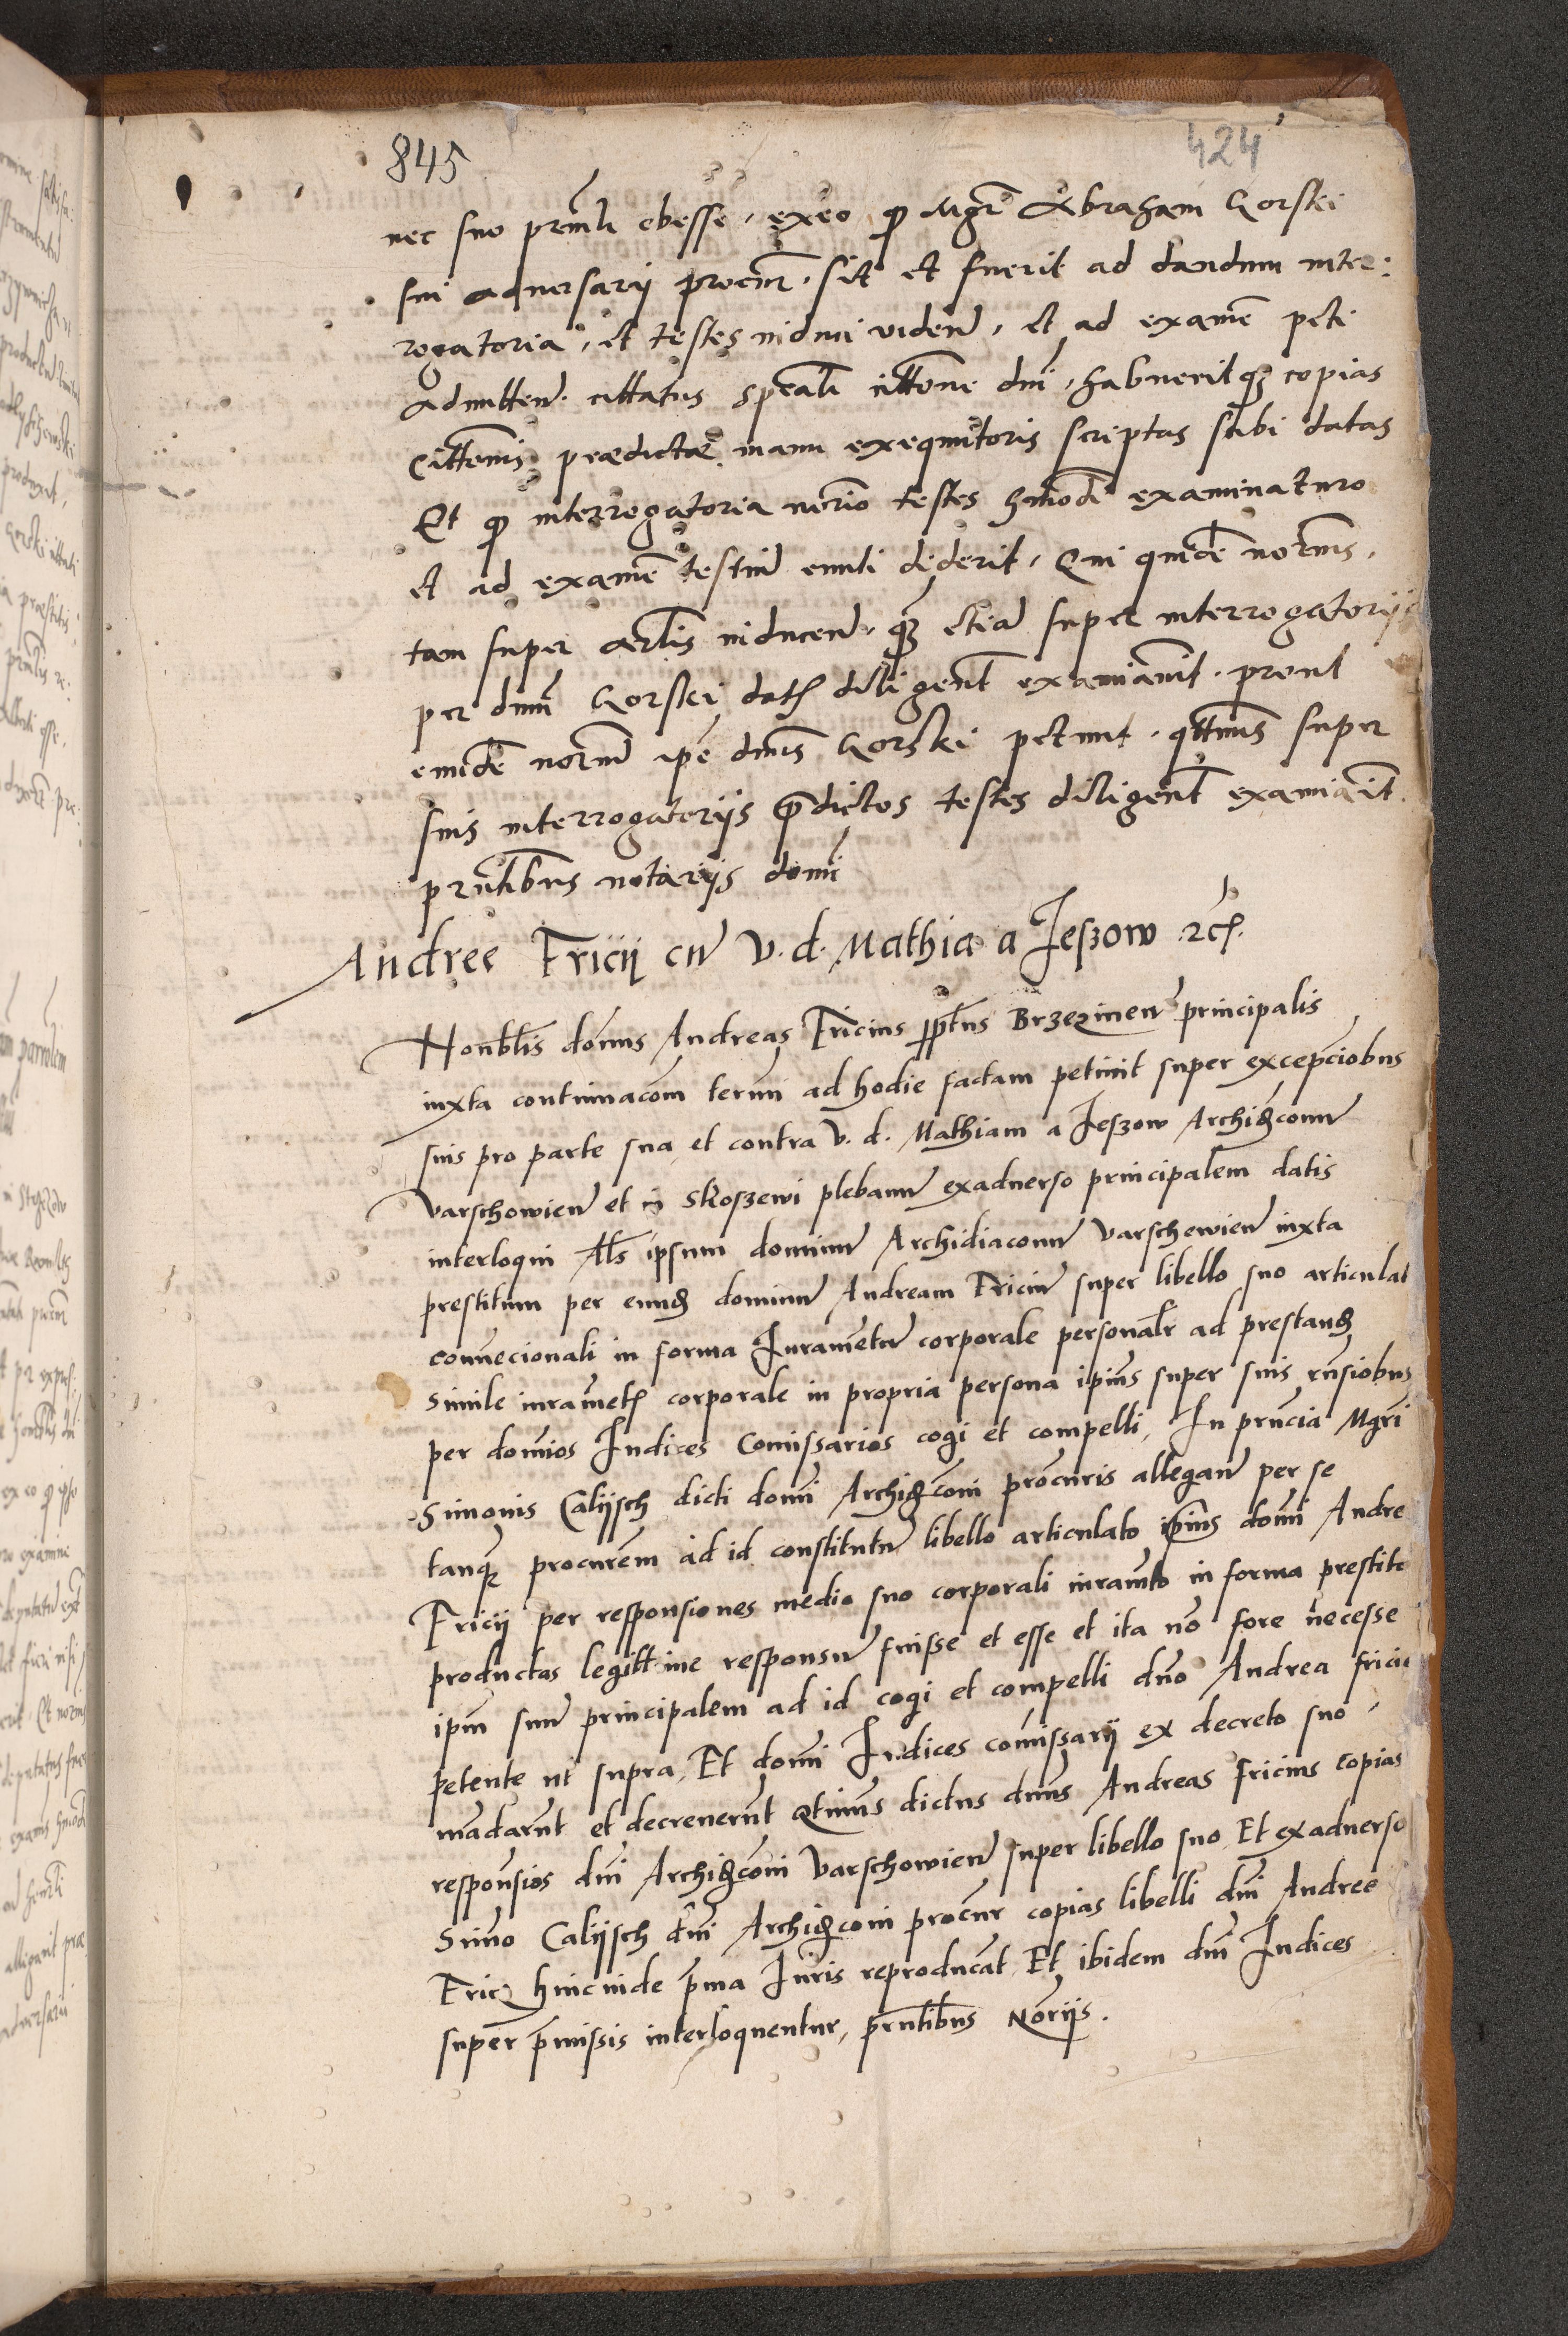 845
424
nec suo prnali obesse, exeo qp Mgr Abraham Gorski
sui aduersarij procur. sit et fuerit ad dandum inter:
rogatoria, et testes induci viden, et ad examen pcti
admitten. citatus speali citione dni, habueritqz copias
Cittonis praedictae manu exequutoris scriptas sibi datas
Et qp interrogatoria notrio testes hmodi examinaturo
et ad examen testiu emiti dederit, Qui quide notrius,
tam super artlis inducen, qz etia super interrogatorijs
per dnum Gorski dat diligent examinauit. prout
eunde notriu ipe dnus Gorski petijt. qttnus super
suis interrogatorijs pdictos testes diligent examiarit
pntibus notarijs domi
Andree Fricij cn V. d. Mathia a Jeszow etc.
Honblis domus Andreas Fricius pptus Brzezinen principalis
iuxta continuacom termi ad hodie factam petiuit super excepciobus
suis pro parte sua, et contra V. d. Mathiam a Jeszow Archidconu
Varschowien et in Skoszewi plebanu exaduerso principalem datis
interloqui Als ipsum dominu Archidiaconu Varschewien iuxta
prestitum per eund dominu Andream Friciu super libello suo articulat
conuencionali in forma Iurametu corporale personalr ad prestand
simile iuramet corporale in propria persona ipius super suis rnsiobus
per domios Iudices Comissarios cogi et compelli, In prncia Mgri
Simonis Calijsch dicti domi Archidconi procuris allegan per se
tanqz procurem ad id constitutu libello articulato ipius domi Andre
Fricij per responsiones medio suo corporali iuramto in forma prestito
productas legittime responsu fuisse et esse et ita no fore necesse
ipm suu principalem ad id cogi et compelli dno Andrea fricio
petente ut supra, Et domi Iudices comissarij ex decreto suo
madarut et decreuerut qtinus dictus dnus Andreas fricius copias
responsios dni Archidconi Varschowien super libello suo Et exaduerso
Simo Calijsch dni Archidconi procur copias libelli dni Andree
Frici hincinde pma Iuris reproducat Et ibidem dni Iudices
super pmissis interloquentur, prntibus Norijs.